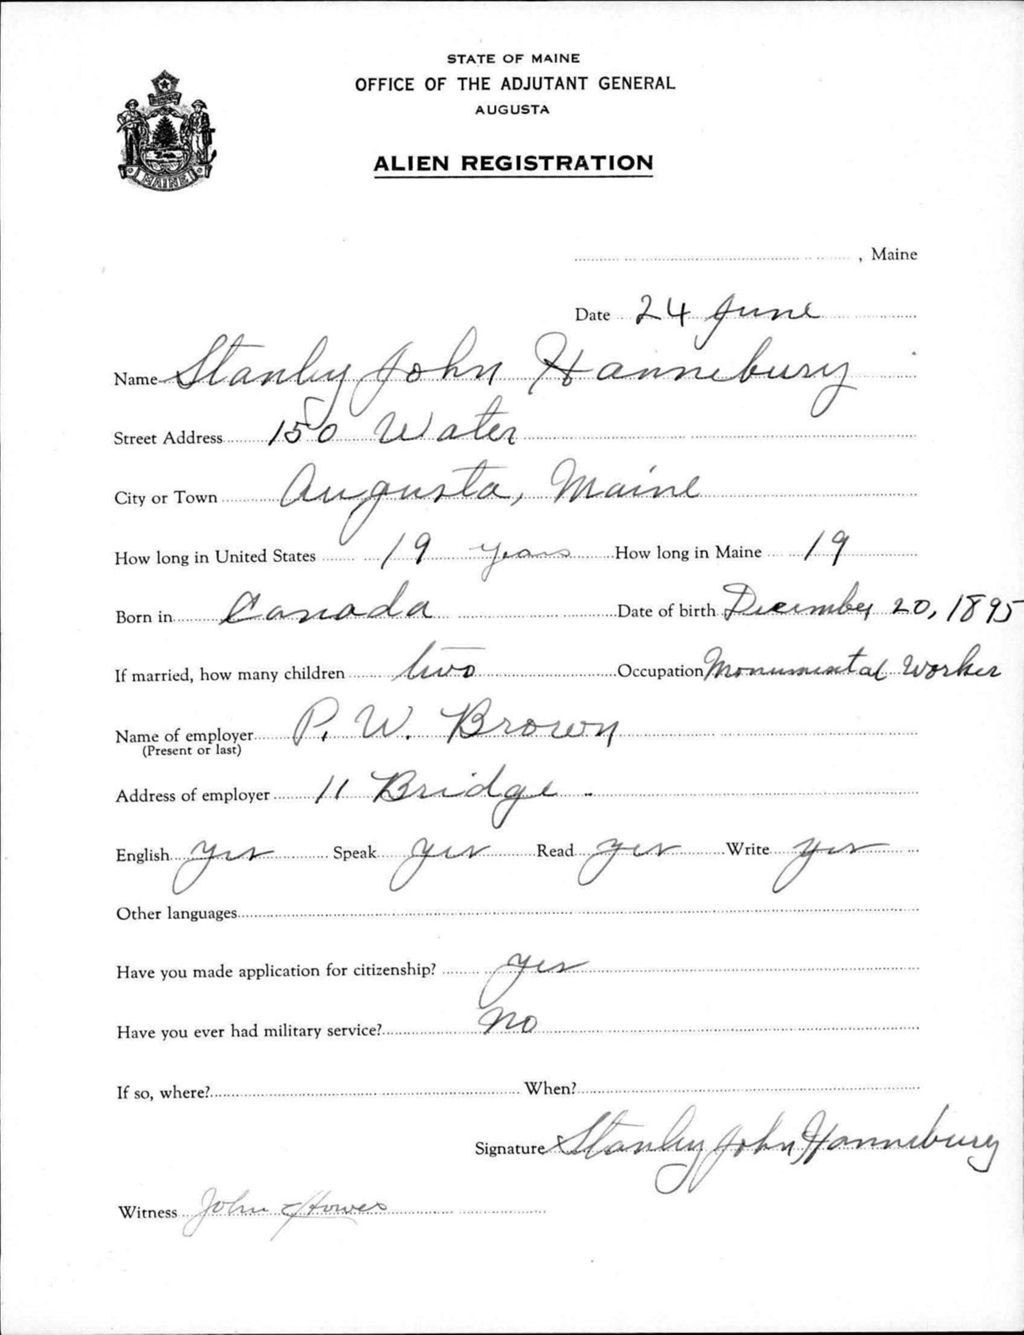 STATE OF MAINE
OFFICE OF THE ADJUTANT GENERAL
AUGUSTA
ALIEN REGISTRATION
MAINE
, Maine
Date 24 June
Name Stanley John Hannebury
Street Address 150 Water
City or Town Augusta, Maine
How long in United States 19 years How long in Maine 19
Born in Canada Date of birth December 20, 1895
If married, how many children two Occupation Monumental Worker
Name of employer P. W. Brown
(Present or last)
Address of employer 11 Bridge -
English yes Speak yes Read yes Write yes
Other languages
Have you made application for citizenship? yes
Have you ever had military service? No
If so, where? When?
Signature Stanley John Hannebury
Witness John Howes